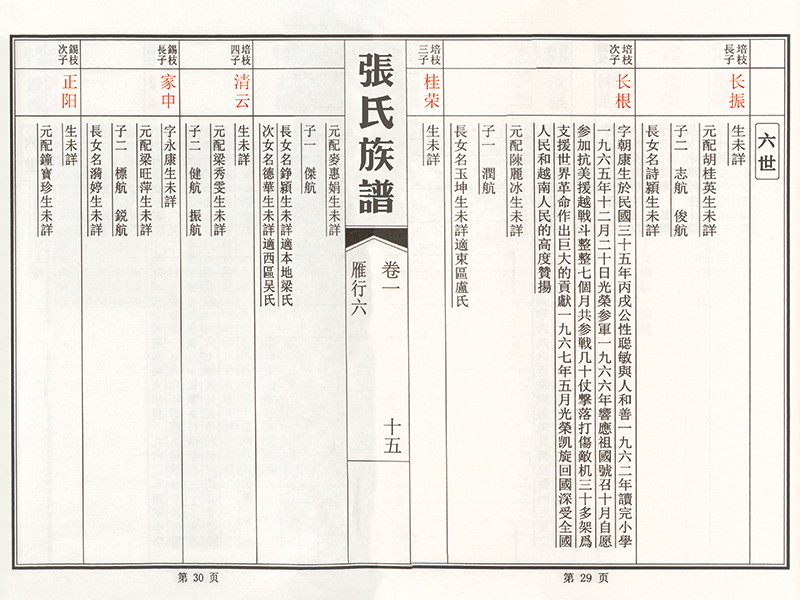 六世
培枝長子
长振
生未詳
元配胡桂英生未詳
子二 志航 俊航
長女名詩穎生未詳
培枝次子
长根
字朝康生於民國三十五年丙戌公性聪敏與人和善一九六二年讀完小學
一九六五年十二月二十日光榮参軍一九六六年響應祖國號召十月自愿
参加抗美援越戰斗整整七個月共参戰几十仗擊落打傷敵机三十多架爲
支援世界革命作出巨大的貢獻一九六七年五月光榮凯旋回國深受全國
人民和越南人民的高度贊揚
元配陳麗冰生未詳
子一 潤航
長女名玉坤生未詳適東區盧氏
培枝三子
桂荣
生未詳
張氏族譜
卷一
雁行六
十五
元配麥惠娟生未詳
子一 傑航
長女名錚穎生未詳適本地梁氏
次女名德華生未詳適西區吴氏
培枝四子
清云
生未詳
元配梁秀雯生未詳
子二 健航 振航
錫枝長子
家申
字永康生未詳
元配梁旺萍生未詳
子二 標航 鋭航
長女名漪婷生未詳
錫枝次子
正阳
生未詳
元配鐘寶珍生未詳
第 30 页
第 29 页